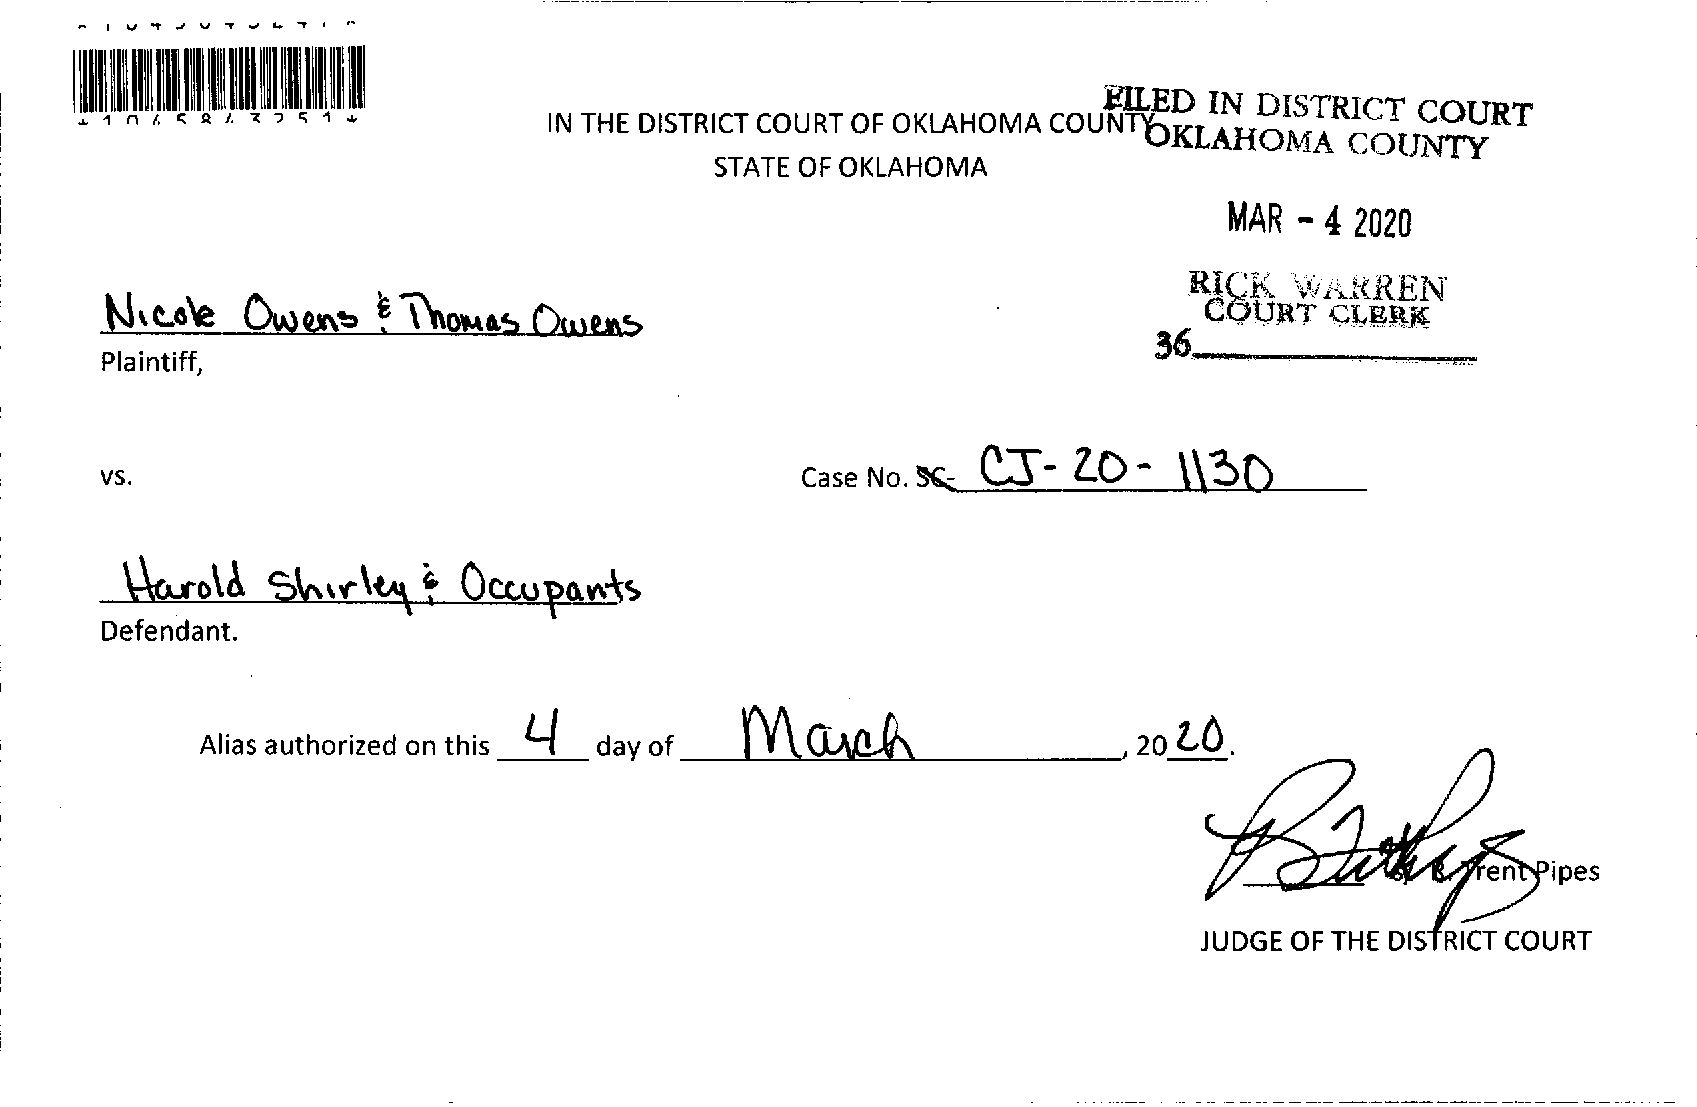 *1045843251*
FILED IN DISTRICT COURT
OKLAHOMA COUNTY
IN THE DISTRICT COURT OF OKLAHOMA COUNTY
STATE OF OKLAHOMA
MAR - 4 2020
RICK WARREN
COURT CLERK
36
Nicole Owens & Thomas Owens
Plaintiff,
vs.
Case No. SC- CJ-20-1130
Harold Shirley & Occupants
Defendant.
Alias authorized on this 4 day of March, 2020.
Trent Pipes
JUDGE OF THE DISTRICT COURT